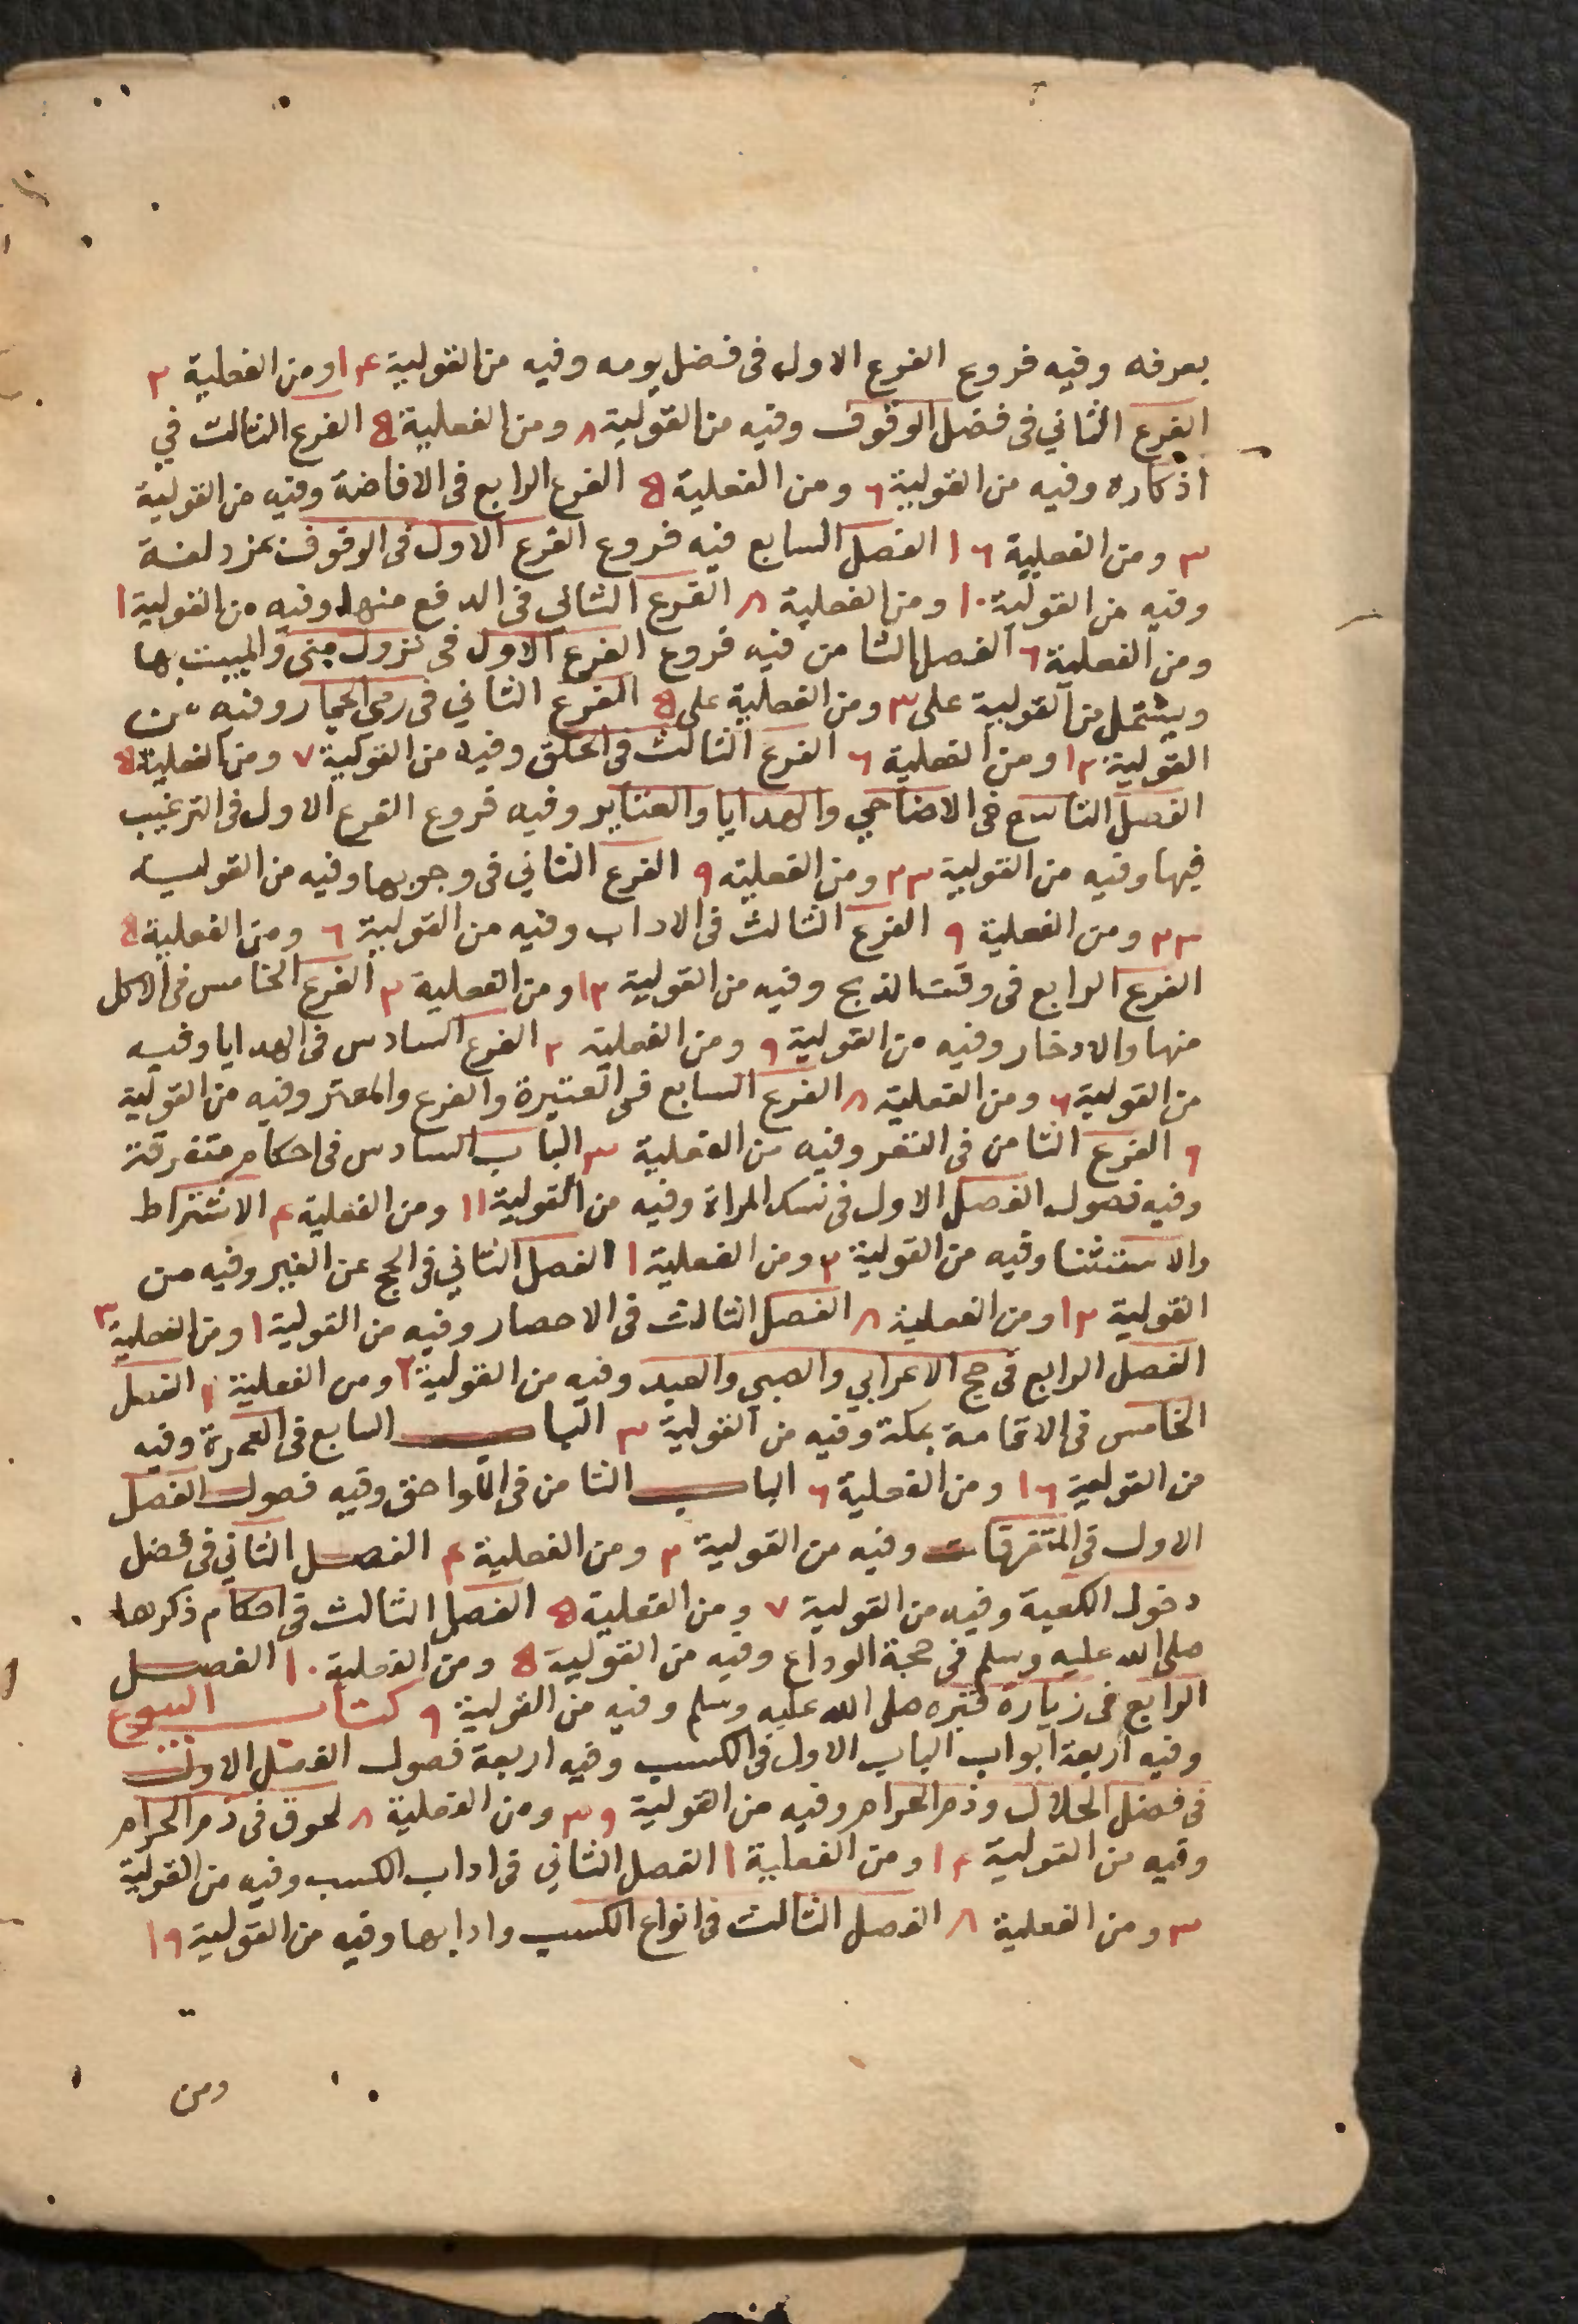 بعرفه وفيه فروع الفرع الاول فى فضل يومه وفيه من القولية ١٤ ومن الفعلية ٢
الفرع الثاني فى فضل الوقوف وفيه من القولية ٨ ومن الفعلية ٥ الفرع الثالث في
اذكاره وفيه من القولية ٦ ومن الفعلية ٥ الفرع الرابع فى الافاضة وفيه من القولية
٣ ومن الفعلية ١٦ الفصل السابع فيه فروع الفرع الاول فى الوقوف بمزدلفة
وفيه من القولية ١٠ ومن الفعلية ٨ الفرع الثانى فى الدفع منها وفيه من القولية ١
ومن الفعلية ٦ الفصل الثامن فيه فروع الفرع الاول فى نزول منى والمبيت بها
ويشتمل من القولية على ٣ ومن الفعلية على ٥ الفرع الثاني فى رمى الجمار وفيه من
القولية ١٢ ومن الفعلية ٦ الفرع الثالث فى الحلق وفيه من القولية ٧ ومن الفعلية ٥
الفصل التاسع فى الاضاحي والهدايا والعتاير وفيه فروع الفرع الاول فى الترغيب
فيها وفيه من القولية ٢٣ ومن الفعلية ٩ الفرع الثاني فى وجوبها وفيه من القولية
٢٣ ومن الفعلية ٩ الفرع الثالث فى الاداب وفيه من القولية ٦ ومن الفعلية ٥
الفرع الرابع فى وقت الذبح وفيه من القولية ١٢ ومن الفعلية ٢ الفرع الخامس فى الاكل
منها والادخار وفيه من القولية ٩ ومن الفعلية ٢ الفرع السادس فى الهدايا وفيه
من القولية ٦ ومن الفعلية ٨ الفرع السابع فى العتيرة والفرع والمعتر وفيه من القولية
٩ الفرع الثامن فى النفر وفيه من الفعلية ٣ الباب السادس فى احكام متفرقة
وفيه فصول الفصل الاول فى نسك المراة وفيه من القولية ١١ ومن الفعلية ٤ الاشتراط
والاستثنا وفيه من القولية ٢ ومن الفعلية ١ الفصل الثاني فى الحج عن الغير وفيه من
القولية ١٢ ومن الفعلية ٨ الفصل الثالث فى الاحصار وفيه من القولية ١ ومن الفعلية ٣
الفصل الرابع فى حج الاعرابي والصبي والعبد وفيه من القولية ٢ ومن الفعلية ١ الفصل
الخامس فى الاقامة بمكة وفيه من القولية ٣ الباب السابع فى العمرة وفيه
من القولية ١٦ ومن الفعلية ٦ الباب الثامن فى اللواحق وفيه فصول الفصل
الاول فى المتفرقات وفيه من القولية ٢ ومن الفعلية ٤ الفصل الثاني فى فضل
دخول الكعبة وفيه من القولية ٧ ومن الفعلية ٥ الفصل الثالث فى احكام ذكرها
صلى الله عليه وسلم فى حجة الوداع وفيه من القولية ٥ ومن الفعلية ١٠ الفصل
الرابع فى زيارة قبره صلى الله عليه وسلم وفيه من القولية ٩ كتاب البيوع
وفيه اربعة ابواب الباب الاول فى الكسب وفيه اربعة فصول الفصل الاول
فى فضل الحلال وذم الحرام وفيه من القولية ٣٩ ومن الفعلية ٨ لحوق فى ذم الحرام
وفيه من القولية ١٤ ومن الفعلية ١ الفصل الثاني فى اداب الكسب وفيه من القولية
٣ ومن الفعلية ٨ الفصل الثالث فى انواع الكسب وادابها وفيه من القولية ١٩
ومن